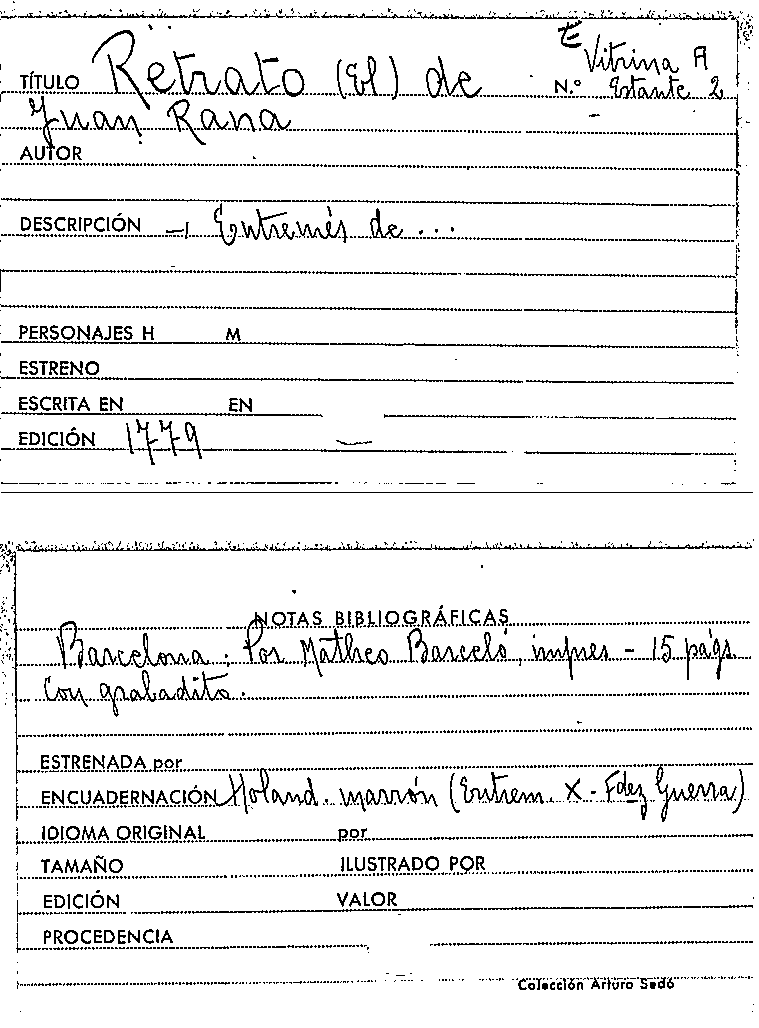 E Vitrina A
TÍTULO Retrato (El) de N.º Estante 2
Juan Rana
AUTOR
DESCRIPCIÓN - Entremés de ...
PERSONAJES H M
ESTRENO
ESCRITA EN EN
EDICIÓN 1779
NOTAS BIBLIOGRÁFICAS
Barcelona: Por Matheo Barceló, impres - 15 págs.
con grabadito.
ESTRENADA por
ENCUADERNACIÓN Holand. marrón (Entrem. X - Fdez Guerra)
IDIOMA ORIGINAL por
TAMAÑO ILUSTRADO POR
EDICIÓN VALOR
PROCEDENCIA
Colección Arturo Sedó